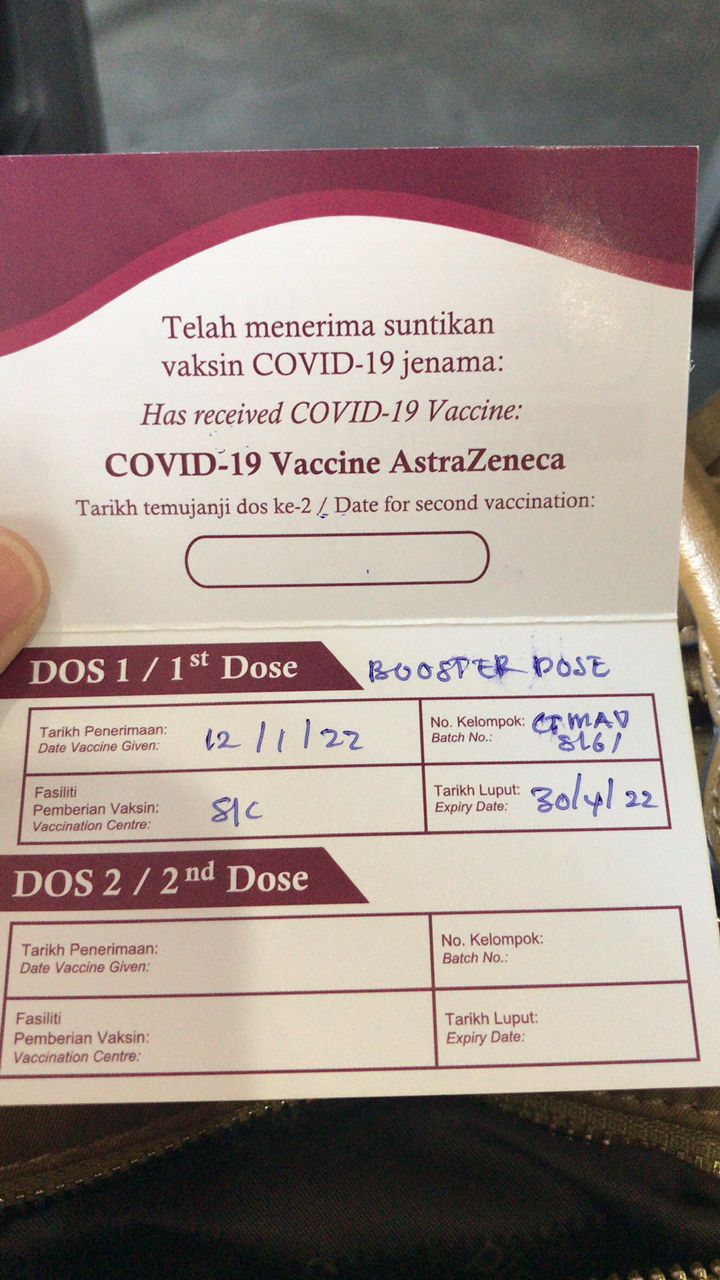 Telah menerima suntikan
vaksin COVID-19 jenama:
Has received COVID-19 Vaccine:
COVID-19 Vaccine AstraZeneca
Tarikh temujanji dos ke-2 / Date for second vaccination:
DOS 1 / 1st Dose BOOSTER DOSE
Tarikh Penerimaan: 12/1/22
Date Vaccine Given:
No. Kelompok:
Batch No.:
Fasiliti
Pemberian Vaksin:
Vaccination Centre:
Tarikh Luput: 30/4/22
Expiry Date:
DOS 2 / 2nd Dose
Tarikh Penerimaan:
Date Vaccine Given:
No. Kelompok:
Batch No.:
Fasiliti
Pemberian Vaksin:
Vaccination Centre:
Tarikh Luput:
Expiry Date: